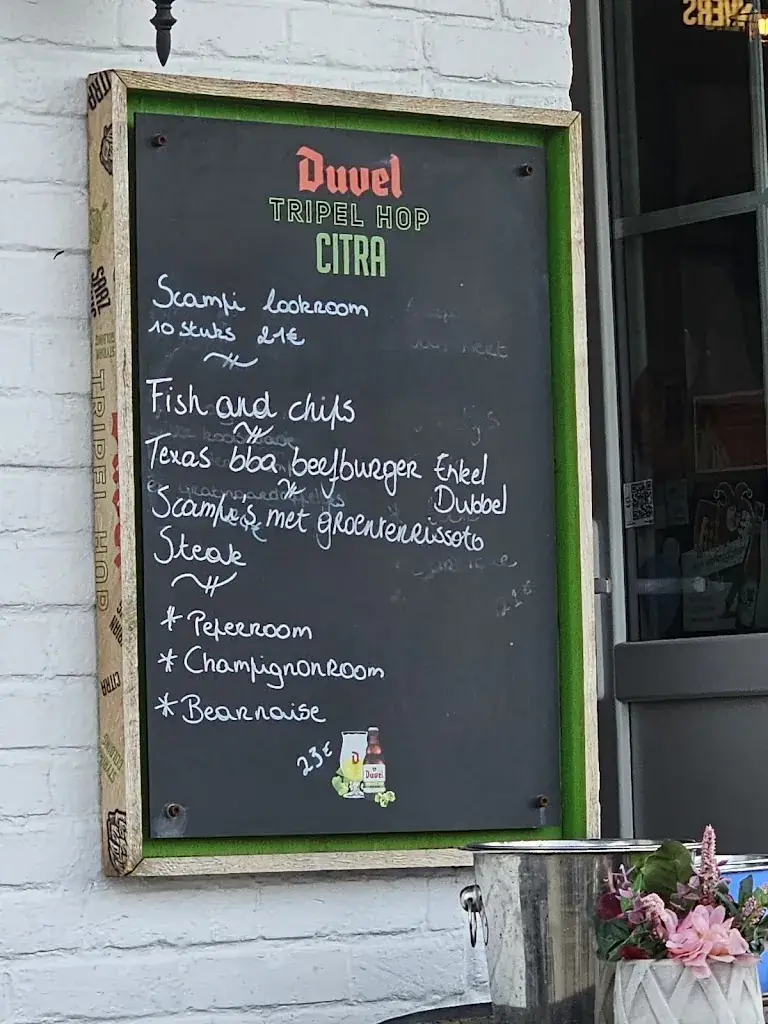 Duvel
TRIPEL HOP
CITRA
Scampi lookroom
10 stuks 21€
Fish and chips
Texas bba beefburger Enkel
Dubbel
Scampi's met groentenrissoto
Steak
* Peperroom
* Champignonroom
* Bearnaise
23€
Duvel
TRIPEL HOP
CITRA